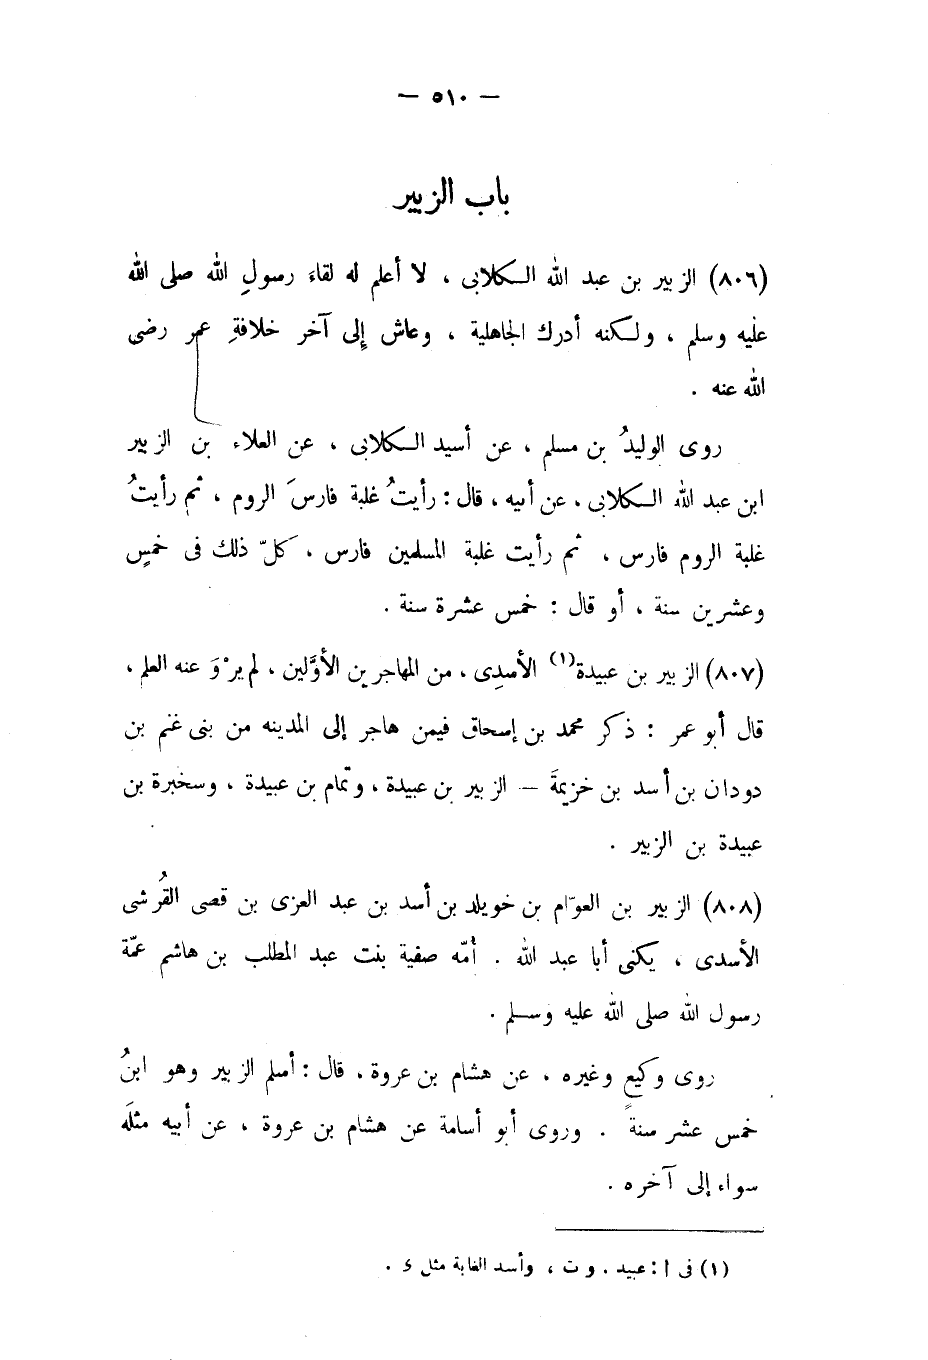 — ٥١٠ —
باب الزبير
(٨٠٦) الزبير بن عبد الله الكلابى ، لا أعلم له لقاءَ رسولِ الله صلى الله
عليه وسلم ، ولكنه أدرك الجاهلية ، وعاش إلى آخر خلافةِ عمر رضى
الله عنه .
روى الوليدُ بن مسلم ، عن أسيد الكلابى ، عن العلاء بن الزبير
ابن عبد الله الكلابى ، عن أبيه ، قال : رأيتُ غلبة فارسَ الروم ، ثم رأيتُ
غلبة الروم فارس ، ثم رأيت غلبة المسلمين فارس ، كلّ ذلك فى خمسٍ
وعشرين سنة ، أو قال : خمس عشرة سنة .
(٨٠٧) الزبير بن عبيدة(١) الأسدِى ، من المهاجرين الأوَّلين ، لم يرْوَ عنه العلم ،
قال أبو عمر : ذكر محمد بن إسحاق فيمن هاجر إلى المدينه من بنى غنم بن
دودان بن أسد بن خزيمةَ — الزبير بن عبيدة ، وتمّام بن عبيدة ، وسخبرة بن
عبيدة بن الزبير .
(٨٠٨) الزبير بن العوّام بن خويلد بن أسد بن عبد العزى بن قصى القُرشى
الأسدى ، يكنى أبا عبد الله . أمّه صفية بنت عبد المطلب بن هاشم عمّة
رسول الله صلى الله عليه وسلم .
روى وكيع وغيره ، عن هشام بن عروة ، قال : أسلم الزبير وهو ابنُ
خمس عشر سنةً . وروى أبو أسامة عن هشام بن عروة ، عن أبيه مثلَه
سواء إلى آخره .
(١) فى أ : عبيد . و ت ، وأسد الغابة مثل ى .